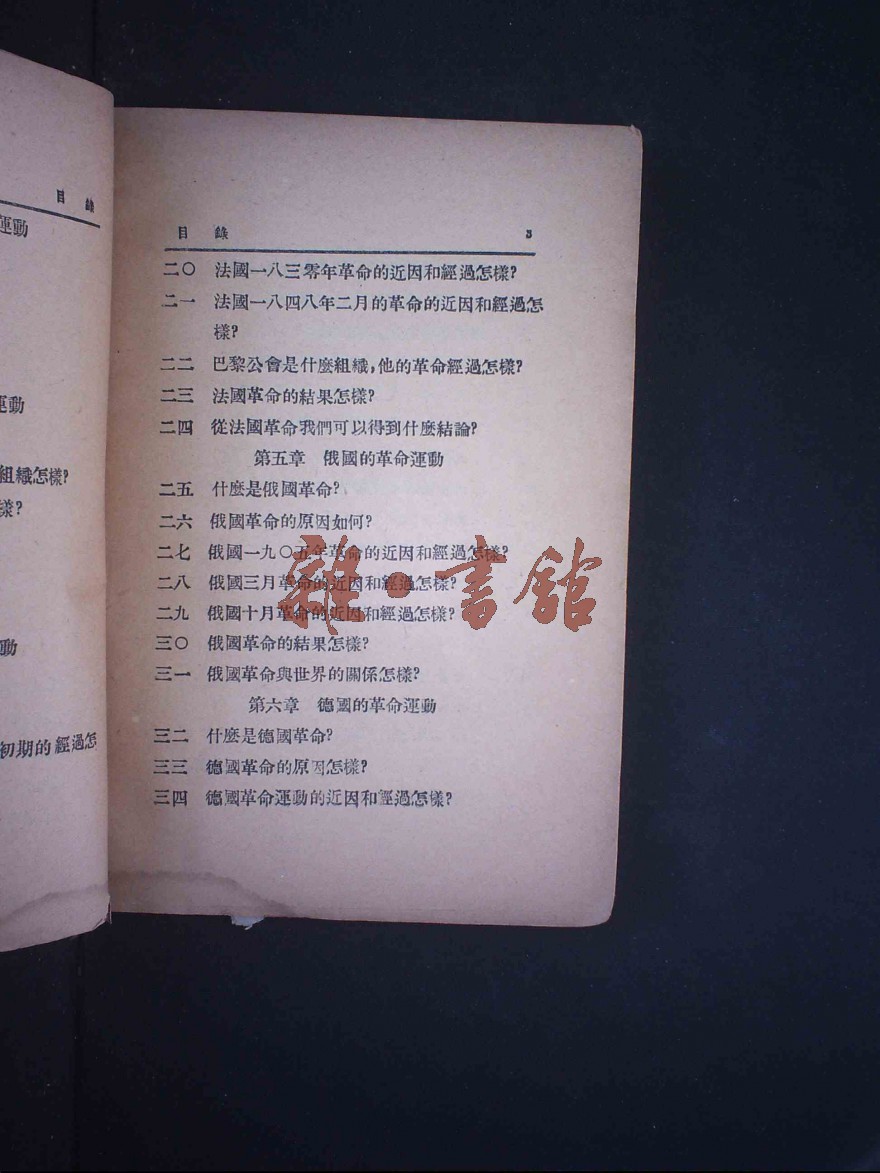 目錄
運動
運動
組織怎樣?
樣?
動
初期的經過怎
目錄 3
二〇 法國一八三零年革命的近因和經過怎樣?
二一 法國一八四八年二月的革命的近因和經過怎
樣?
二二 巴黎公會是什麼組織,他的革命經過怎樣?
二三 法國革命的結果怎樣?
二四 從法國革命我們可以得到什麼結論?
第五章 俄國的革命運動
二五 什麼是俄國革命?
二六 俄國革命的原因如何?
二七 俄國一九〇五年革命的近因和經過怎樣?
二八 俄國三月革命的近因和經過怎樣?
二九 俄國十月革命的近因和經過怎樣?
三〇 俄國革命的結果怎樣?
三一 俄國革命與世界的關係怎樣?
第六章 德國的革命運動
三二 什麼是德國革命?
三三 德國革命的原因怎樣?
三四 德國革命運動的近因和經過怎樣?
雜·書館